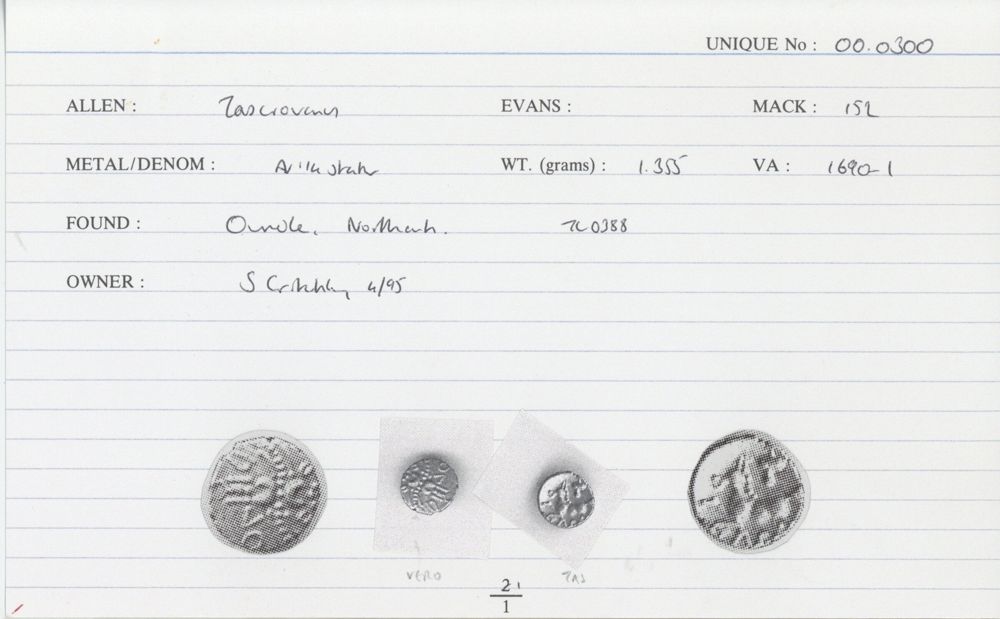 UNIQUE No : 00.0300
ALLEN : Tasciovanus EVANS : MACK : 152
METAL/DENOM : AV 1/4 stater WT. (grams) : 1.355 VA : 1690-1
FOUND : Oundle, Northants. 0388
OWNER : S Critchley 4/95
VERO TAS
21
1